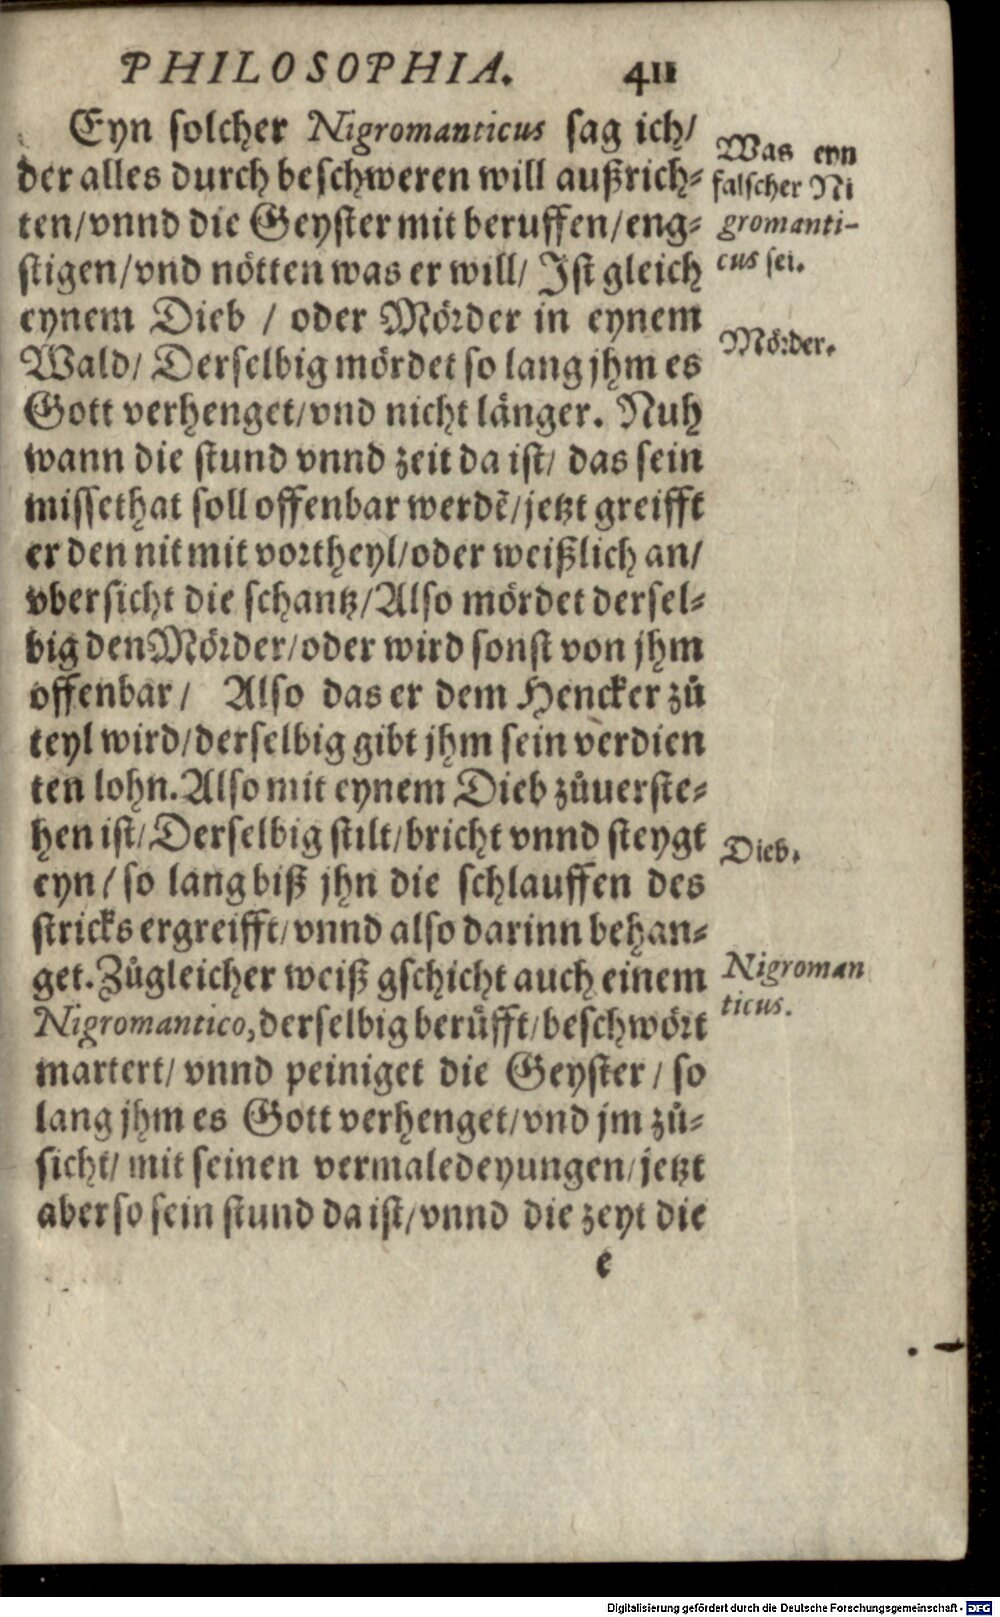 PHILOSOPHIA. 411
Eyn solcher Nigromanticus sag ich/
der alles durch beschweren will außrich⸗
ten/vnnd die Geyster mit beruffen/eng⸗
stigen/vnd nötten was er will/ Ist gleich
eynem Dieb / oder Mörder in eynem
Wald/ Derselbig mördet so lang jhm es
Gott verhenget/vnd nicht länger. Nuh
wann die stund vnnd zeit da ist/ das sein
missethat soll offenbar werdẽ/jetzt greifft
er den nit mit vortheyl/oder weißlich an/
vbersicht die schantz/Also mördet dersel⸗
big den Mörder/oder wird sonst von jhm
offenbar/ Also das er dem Hencker zů
teyl wird/derselbig gibt jhm sein verdien
ten lohn. Also mit eynem Dieb zůuerste⸗
hen ist/ Derselbig stilt/bricht vnnd steygt
eyn/so lang biß jhn die schlauffen des
stricks ergreifft/vnnd also darinn behan⸗
get. Zůgleicher weiß gschicht auch einem
Nigromantico, derselbig berůfft/beschwört
martert/ vnnd peiniget die Geyster/ so
lang jhm es Gott verhenget/vnd jm zů⸗
sicht/ mit seinen vermaledeyungen/jetzt
aber so sein stund da ist/vnnd die zeyt die
e
Was eyn
falscher Ni
gromanti-
cus sei.
Mörder.
Dieb.
Nigroman
ticus.
Digitalisierung gefördert durch die Deutsche Forschungsgemeinschaft - DFG